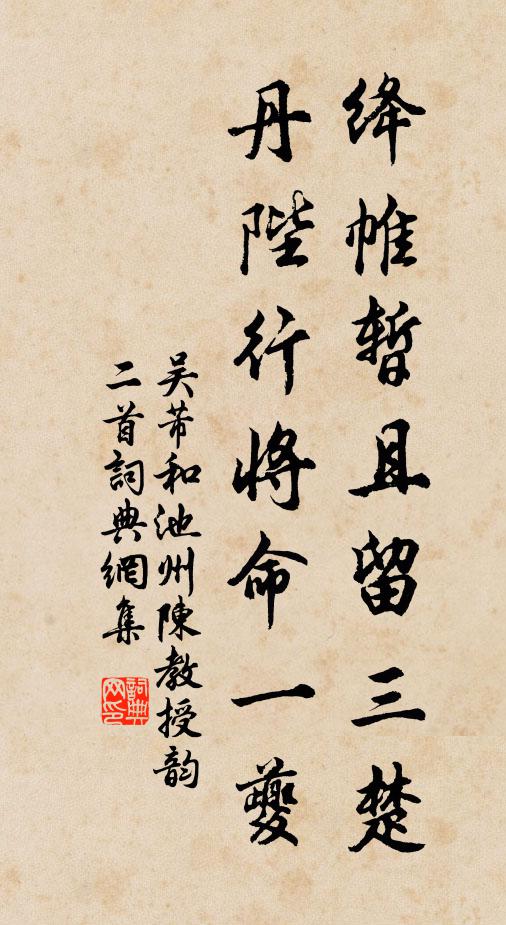 絳帷暫且留三楚
丹陛行將命一夔
吴芾和池州陳教授韵
二首詞典網集
詞典
网印